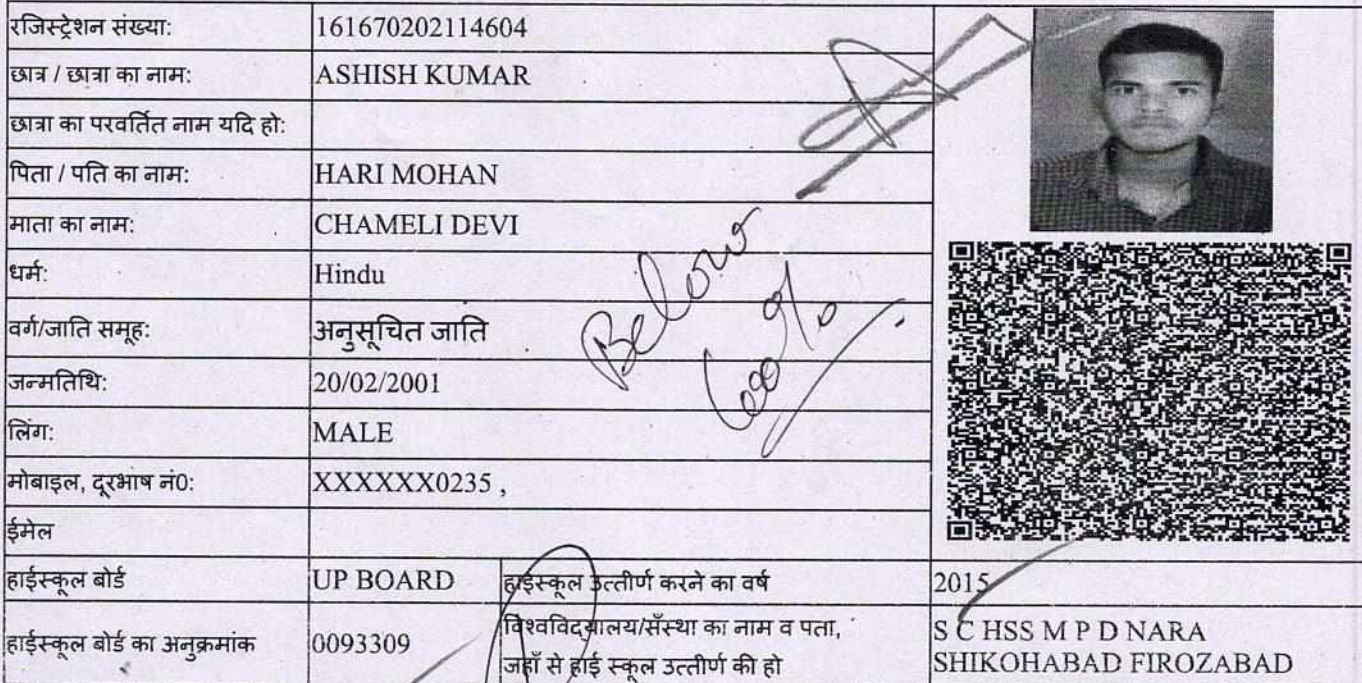 रजिस्ट्रेशन संख्या: 161670202114604
छात्र / छात्रा का नाम: ASHISH KUMAR
छात्रा का परवर्तित नाम यदि हो:
पिता / पति का नाम: HARI MOHAN
माता का नाम: CHAMELI DEVI
धर्म: Hindu
वर्ग/जाति समूह: अनुसूचित जाति
जन्मतिथि: 20/02/2001
लिंग: MALE
मोबाइल, दूरभाष नं0: XXXXXX0235 ,
ईमेल
हाईस्कूल बोर्ड UP BOARD हाईस्कूल उत्तीर्ण करने का वर्ष 2015
हाईस्कूल बोर्ड का अनुक्रमांक 0093309 विश्वविद्यालय/सँस्था का नाम व पता, जहाँ से हाई स्कूल उत्तीर्ण की हो S C HSS M P D NARA SHIKOHABAD FIROZABAD
Below